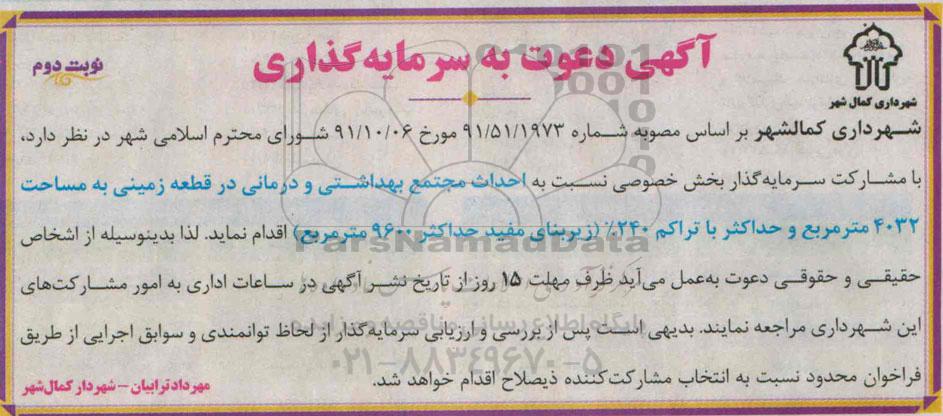 آگهی دعوت به سرمایه‌گذاری
نوبت دوم
شهرداری کمال شهر
شهرداری کمالشهر بر اساس مصوبه شماره ۹۱/۵۱/۱۹۷۳ مورخ ۹۱/۱۰/۰۶ شورای محترم اسلامی شهر در نظر دارد،
با مشارکت سرمایه‌گذار بخش خصوصی نسبت به احداث مجتمع بهداشتی و درمانی در قطعه زمینی به مساحت
۴۰۳۲ مترمربع و حداکثر با تراکم ۲۴۰٪ (زیربنای مفید حداکثر ۹۶۰۰ مترمربع) اقدام نماید. لذا بدینوسیله از اشخاص
حقیقی و حقوقی دعوت به‌عمل می‌آید ظرف مهلت ۱۵ روز از تاریخ نشر آگهی در ساعات اداری به امور مشارکت‌های
این شهرداری مراجعه نمایند. بدیهی است پس از بررسی و ارزیابی سرمایه‌گذار از لحاظ توانمندی و سوابق اجرایی از طریق
فراخوان محدود نسبت به انتخاب مشارکت‌کننده ذیصلاح اقدام خواهد شد.
مهرداد ترابیان – شهردار کمال‌شهر
ParsNamadData
پایگاه اطلاع رسانی مناقصه و مزایده
۰۲۱-۸۸۳۴۹۶۷۰-۵